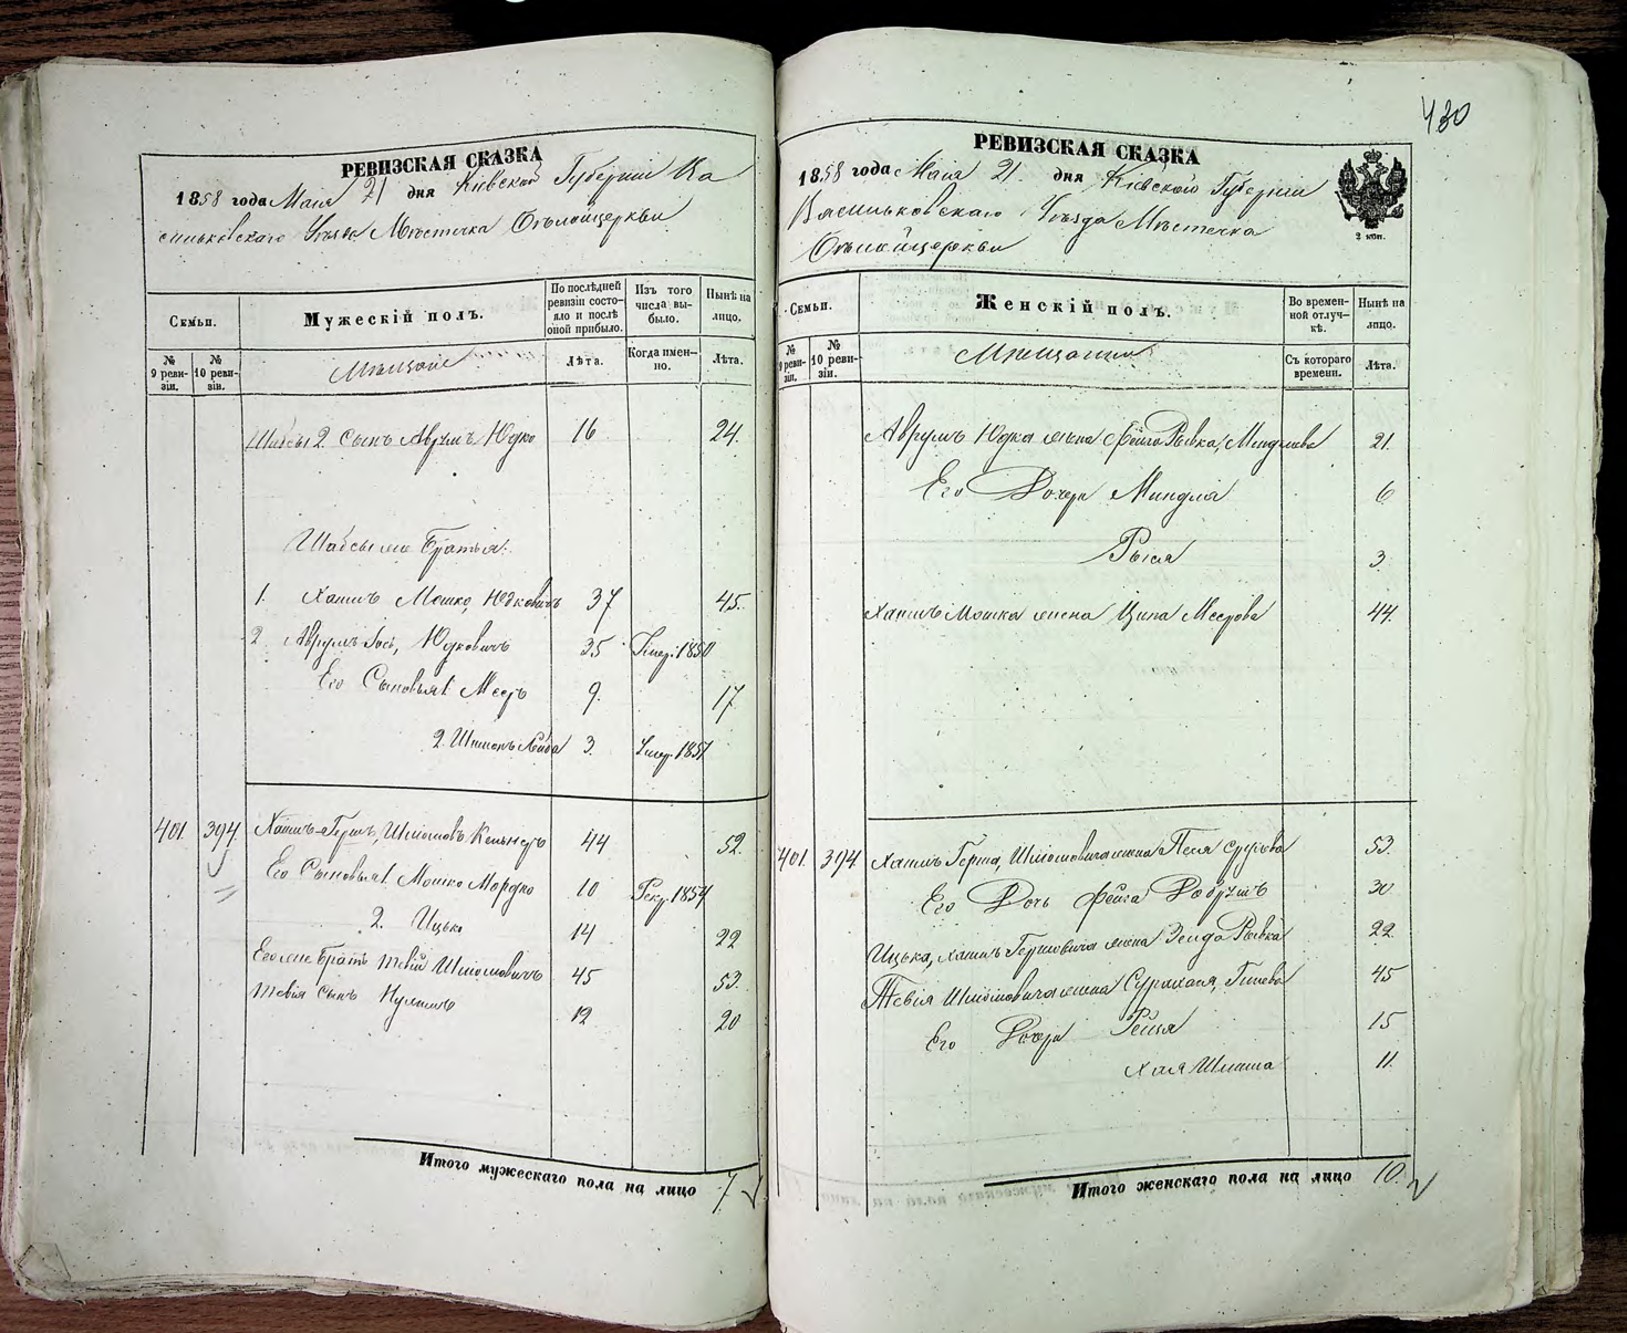 РЕВИЗСКАЯ СКАЗКА
1858 года Маія 21 дня Кіевской Губерніи Ва
сильковскаго Уѣзда Мѣстечка Бѣлойцеркви
Семьи.
Мужескій полъ.
По послѣдней ревизіи состо-
яло и послѣ
оной прибыло.
Изъ того
числа вы-
было.
Нынѣ на
лицо.
№
9 реви-
зіи.
№
10 реви-
зіи.
Мѣщане
Лѣта.
Когда имен-
но.
Лѣта.
Шабсы 2. сынъ Аврумъ Юдко 16 24.
Шабсы же братья:
1. Хаимъ Мошко, Юдковичъ 37 45.
2. Аврумъ Іось, Юдковичъ 35 Умер. 1850
Его Сыновья 1. Мееръ 9. 17
2. Шимонъ Лейба 3. Умер. 1851
401. 394. Хаимъ-Герш, Шліомовъ 44 52.
Его Сыновья 1. Мошко Мордко 10 Рекр. 1854
2. Ицько 14 22
Его же братъ Тевій Шліомовичъ 45 53.
Тевія сынъ Нухимъ 12 20
Итого мужескаго пола на лицо 7.
430
РЕВИЗСКАЯ СКАЗКА
1858 года Маія 21. дня Кіевской Губерніи
Васильковскаго Уѣзда Мѣстечка
Бѣлойцеркви
2 коп.
Семьи.
Женскій полъ.
Во времен-
ной отлуч-
кѣ.
Нынѣ на
лицо.
№
9 реви-
зіи.
№
10 реви-
зіи.
Мѣщанки
Съ котораго
времени.
Лѣта.
Аврумъ Юдка жена Фейга Рывка, 21.
Его Дочери Миндля 6
Рыся 3.
Хаимъ Мошка жена Ципа Меерова 44.
401. 394. Хаимъ Герша, Шліомовича жена Песя Срулева 53.
Его Дочь Фейга Добрушъ 30
Ицька, Хаимъ Гершовича жена Зельда Рывка 22.
Тевія Шліомовича жена 45
Его Дочери Рейзя 15
Хая Шлима 11.
Итого женскаго пола на лицо 10.